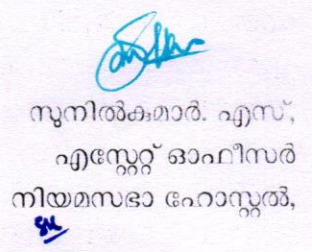 സുനിൽകുമാർ. എസ്,
എസ്റ്റേറ്റ് ഓഫീസർ
നിയമസഭാ ഹോസ്റ്റൽ,